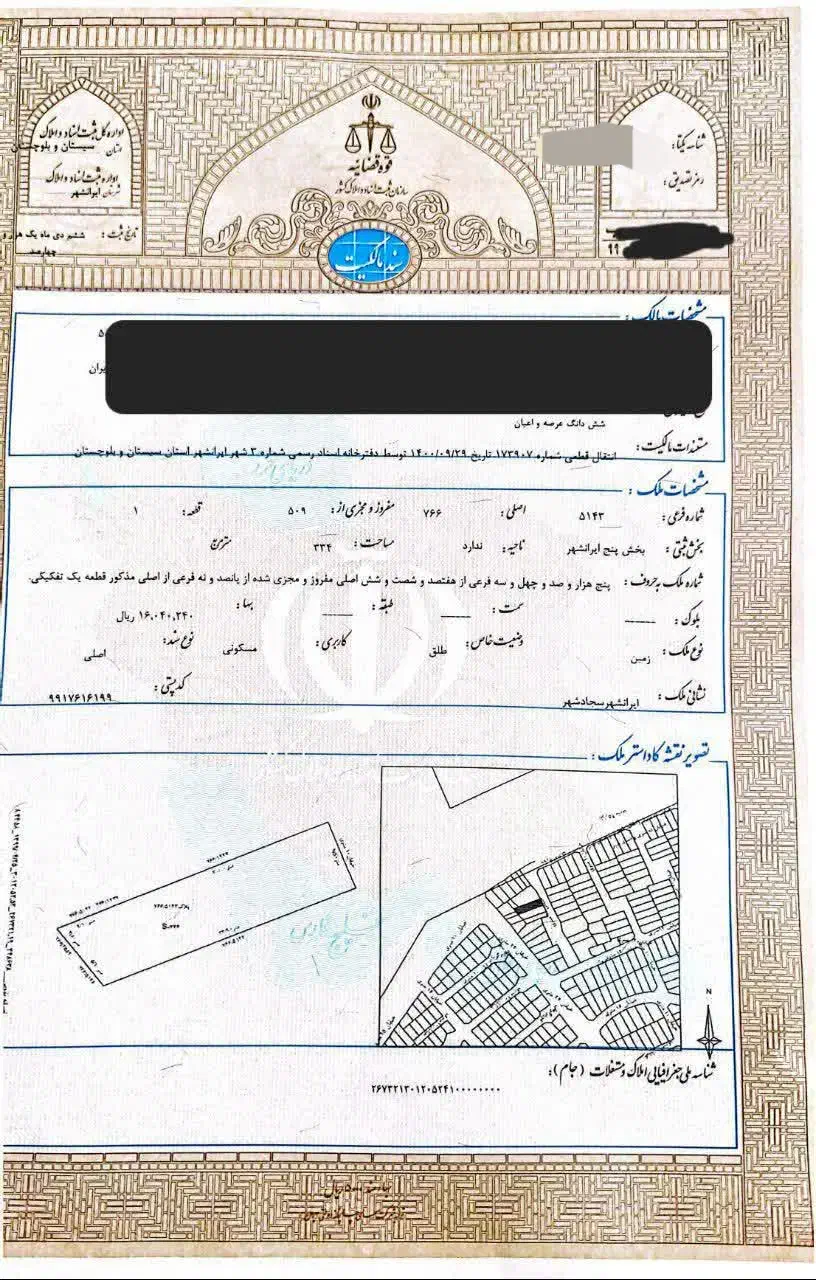 قوه قضائیه
سازمان ثبت اسناد و املاک کشور
سند مالکیت
شناسه یکتا:
رمز تصدیق:
۹۹
اداره کل ثبت اسناد و املاک
استان سیستان و بلوچستان
اداره ثبت اسناد و املاک
شهرستان ایرانشهر
تاریخ ثبت: ششم دی ماه یک هزار و
چهارصد
مشخصات مالک:
شش دانگ عرصه و اعیان
مستندات مالکیت: انتقال قطعی شماره ۱۷۳۹۰۷ تاریخ ۱۴۰۰/۰۹/۲۹ توسط دفترخانه اسناد رسمی شماره ۳ شهر ایرانشهر استان سیستان و بلوچستان
مشخصات ملک:
شماره فرعی: ۵۱۴۳ اصلی: ۷۶۶ مفروز و مجزی از: ۵۰۹ قطعه: ۱
بخش ثبتی: بخش پنج ایرانشهر ناحیه: ندارد مساحت: ۳۳۴ مترمربع
شماره ملک به حروف: پنج هزار و صد و چهل و سه فرعی از هفتصد و شصت و شش اصلی مفروز و مجزی شده از پانصد و نه فرعی از اصلی مذکور قطعه یک تفکیکی.
بلوک: سمت: طبقه: بها: ۱۶,۰۴۰,۲۴۰ ریال
نوع ملک: زمین وضعیت خاص: طلق کاربری: مسکونی نوع سند: اصلی
نشانی ملک: ایرانشهر سجادشهر کدپستی: ۹۹۱۷۶۱۶۱۹۹
تصویر نقشه کاداستر ملک:
N
شناسه ملی جغرافیایی املاک و مستغلات (جام):
۲۶۷۳۲۱۳۰۱۲۰۵۲۴۱۰۰۰۰۰۰۰۰